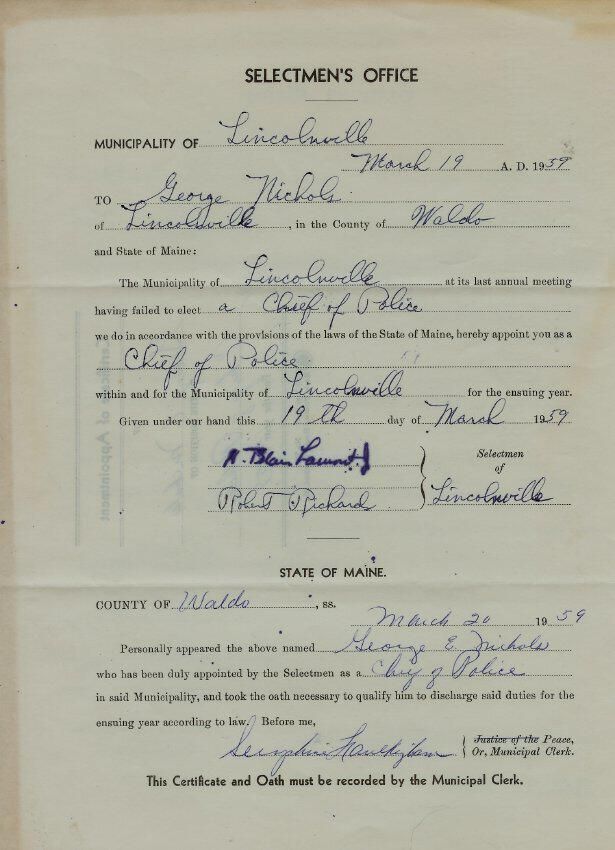 SELECTMEN'S OFFICE
MUNICIPALITY OF Lincolnville
March 19 A. D. 1959
TO George Nichols
of Lincolnville, in the County of Waldo
and State of Maine:
The Municipality of Lincolnville at its last annual meeting
having failed to elect a Chief of Police
we do in accordance with the provisions of the laws of the State of Maine, hereby appoint you as a
Chief of Police
within and for the Municipality of Lincolnville for the ensuing year.
Given under our hand this 19th day of March 1959
Blair
Robert Richard
Selectmen
of
Lincolnville
STATE OF MAINE.
COUNTY OF Waldo, ss.
March 20 1959
Personally appeared the above named George E. Nichols
who has been duly appointed by the Selectmen as a Chief of Police
in said Municipality, and took the oath necessary to qualify him to discharge said duties for the
ensuing year according to law. Before me,
Justice of the Peace,
Or, Municipal Clerk.
This Certificate and Oath must be recorded by the Municipal Clerk.